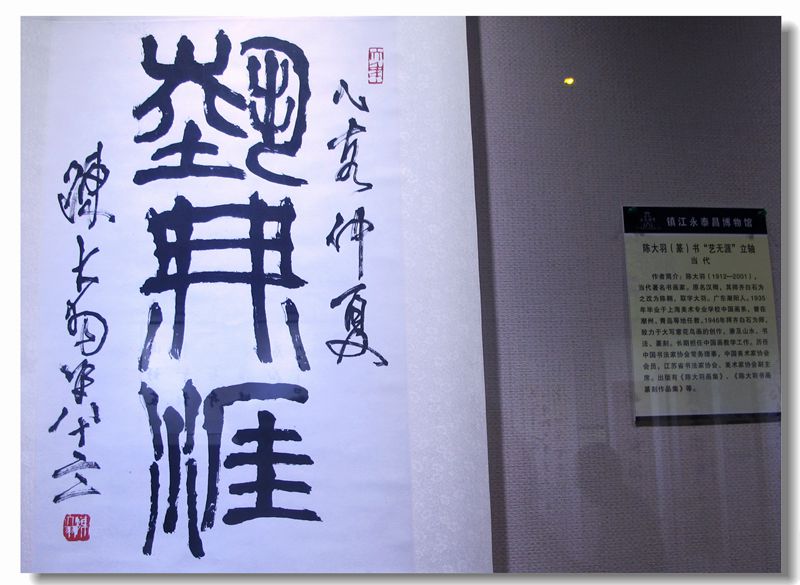 藝無涯
仲夏
陳大羽年八十
镇江永泰昌博物馆
陈大羽（篆）书“艺无涯”立轴
当代
作者简介：陈大羽（1912—2001），
当代著名书画家。原名汉卿，其师齐白石为
之改为陈翱，取字大羽。广东潮阳人。1935
年毕业于上海美术专业学校中国画系，曾在
潮州、青岛等地任教。1946年拜齐白石为师，
致力于大写意花鸟画的创作，兼及山水、书
法、篆刻。长期担任中国画教学工作。历任
中国书法家协会常务理事，中国美术家协会
会员，江苏省书法家协会、美术家协会副主
席。出版有《陈大羽画集》、《陈大羽书画
篆刻作品集》等。